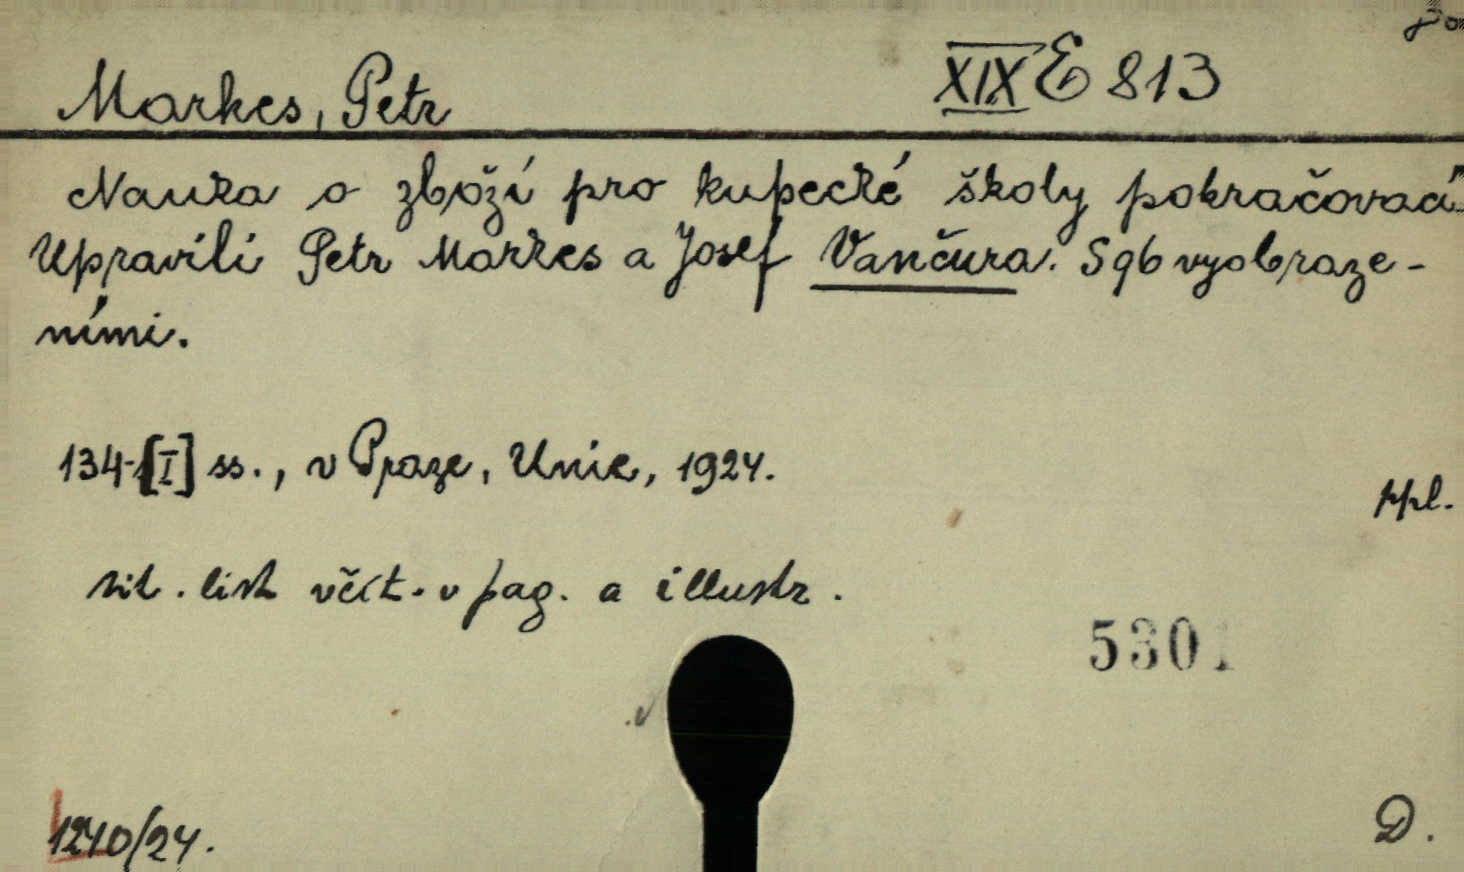 Markes, Petr XIX E 813
Nauka o zboží pro kupecké školy pokračovací
Upravili Petr Markes a Josef Vančura. S 96 vyobraze-
ními.
134-[I] ss., v Praze, Unie, 1924.
ppl.
tit. list včít. v pag. a illustr.
5301
1240/24.
D.